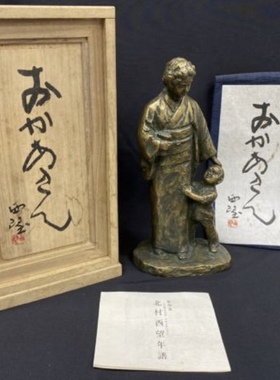 おかあさん
西望
おかあさん
西望
北村西望年譜